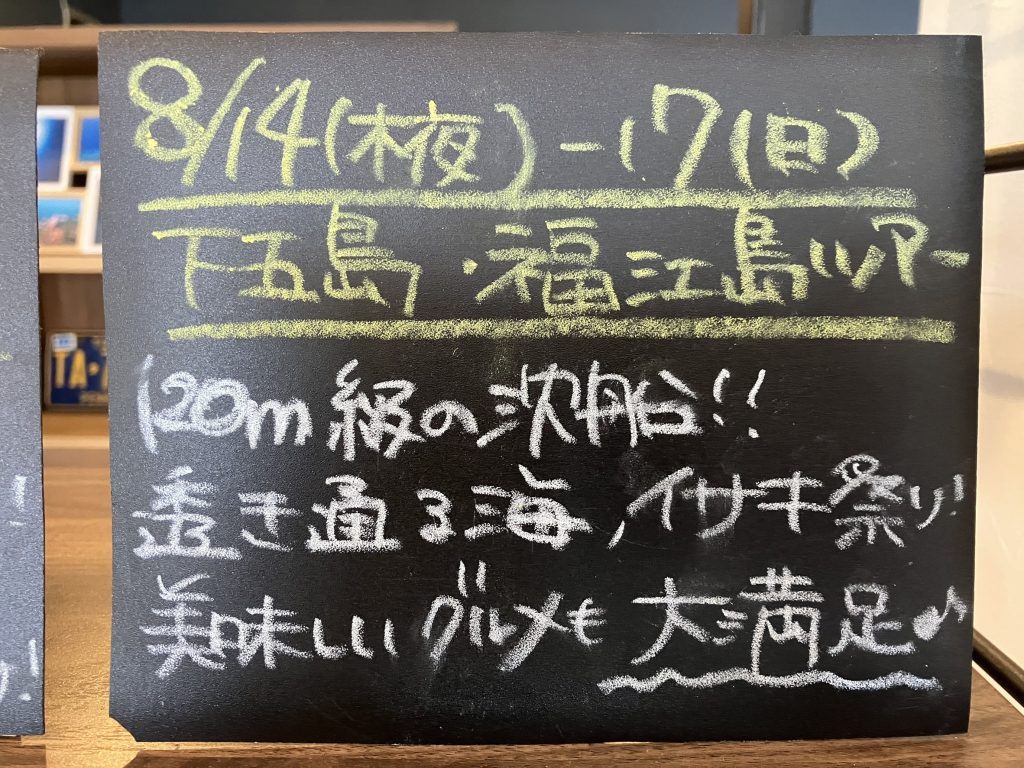 8/14(木夜)-17(日)
下五島・福江島ツアー
120m級の沈船!!
透き通る海,イサキ祭り!
美味しいグルメも大満足♪
TA・